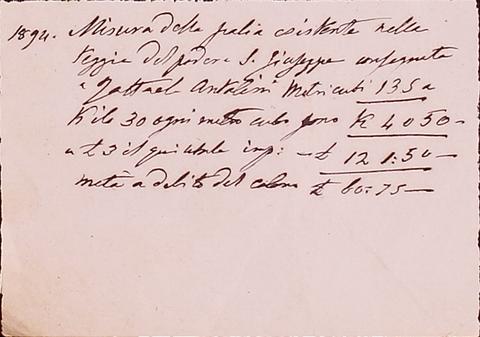 1894. Misura della palia esistente nella
seggia del podere S. Giuseppe consegnata
a Raffael Antolini Metri cubi 135 a
Kilo 30 ogni metro cubo sono K 4050 —
a £ 3 il quintale imp: — £ 121:50 —
metà a debito del colono £ 60:75 —